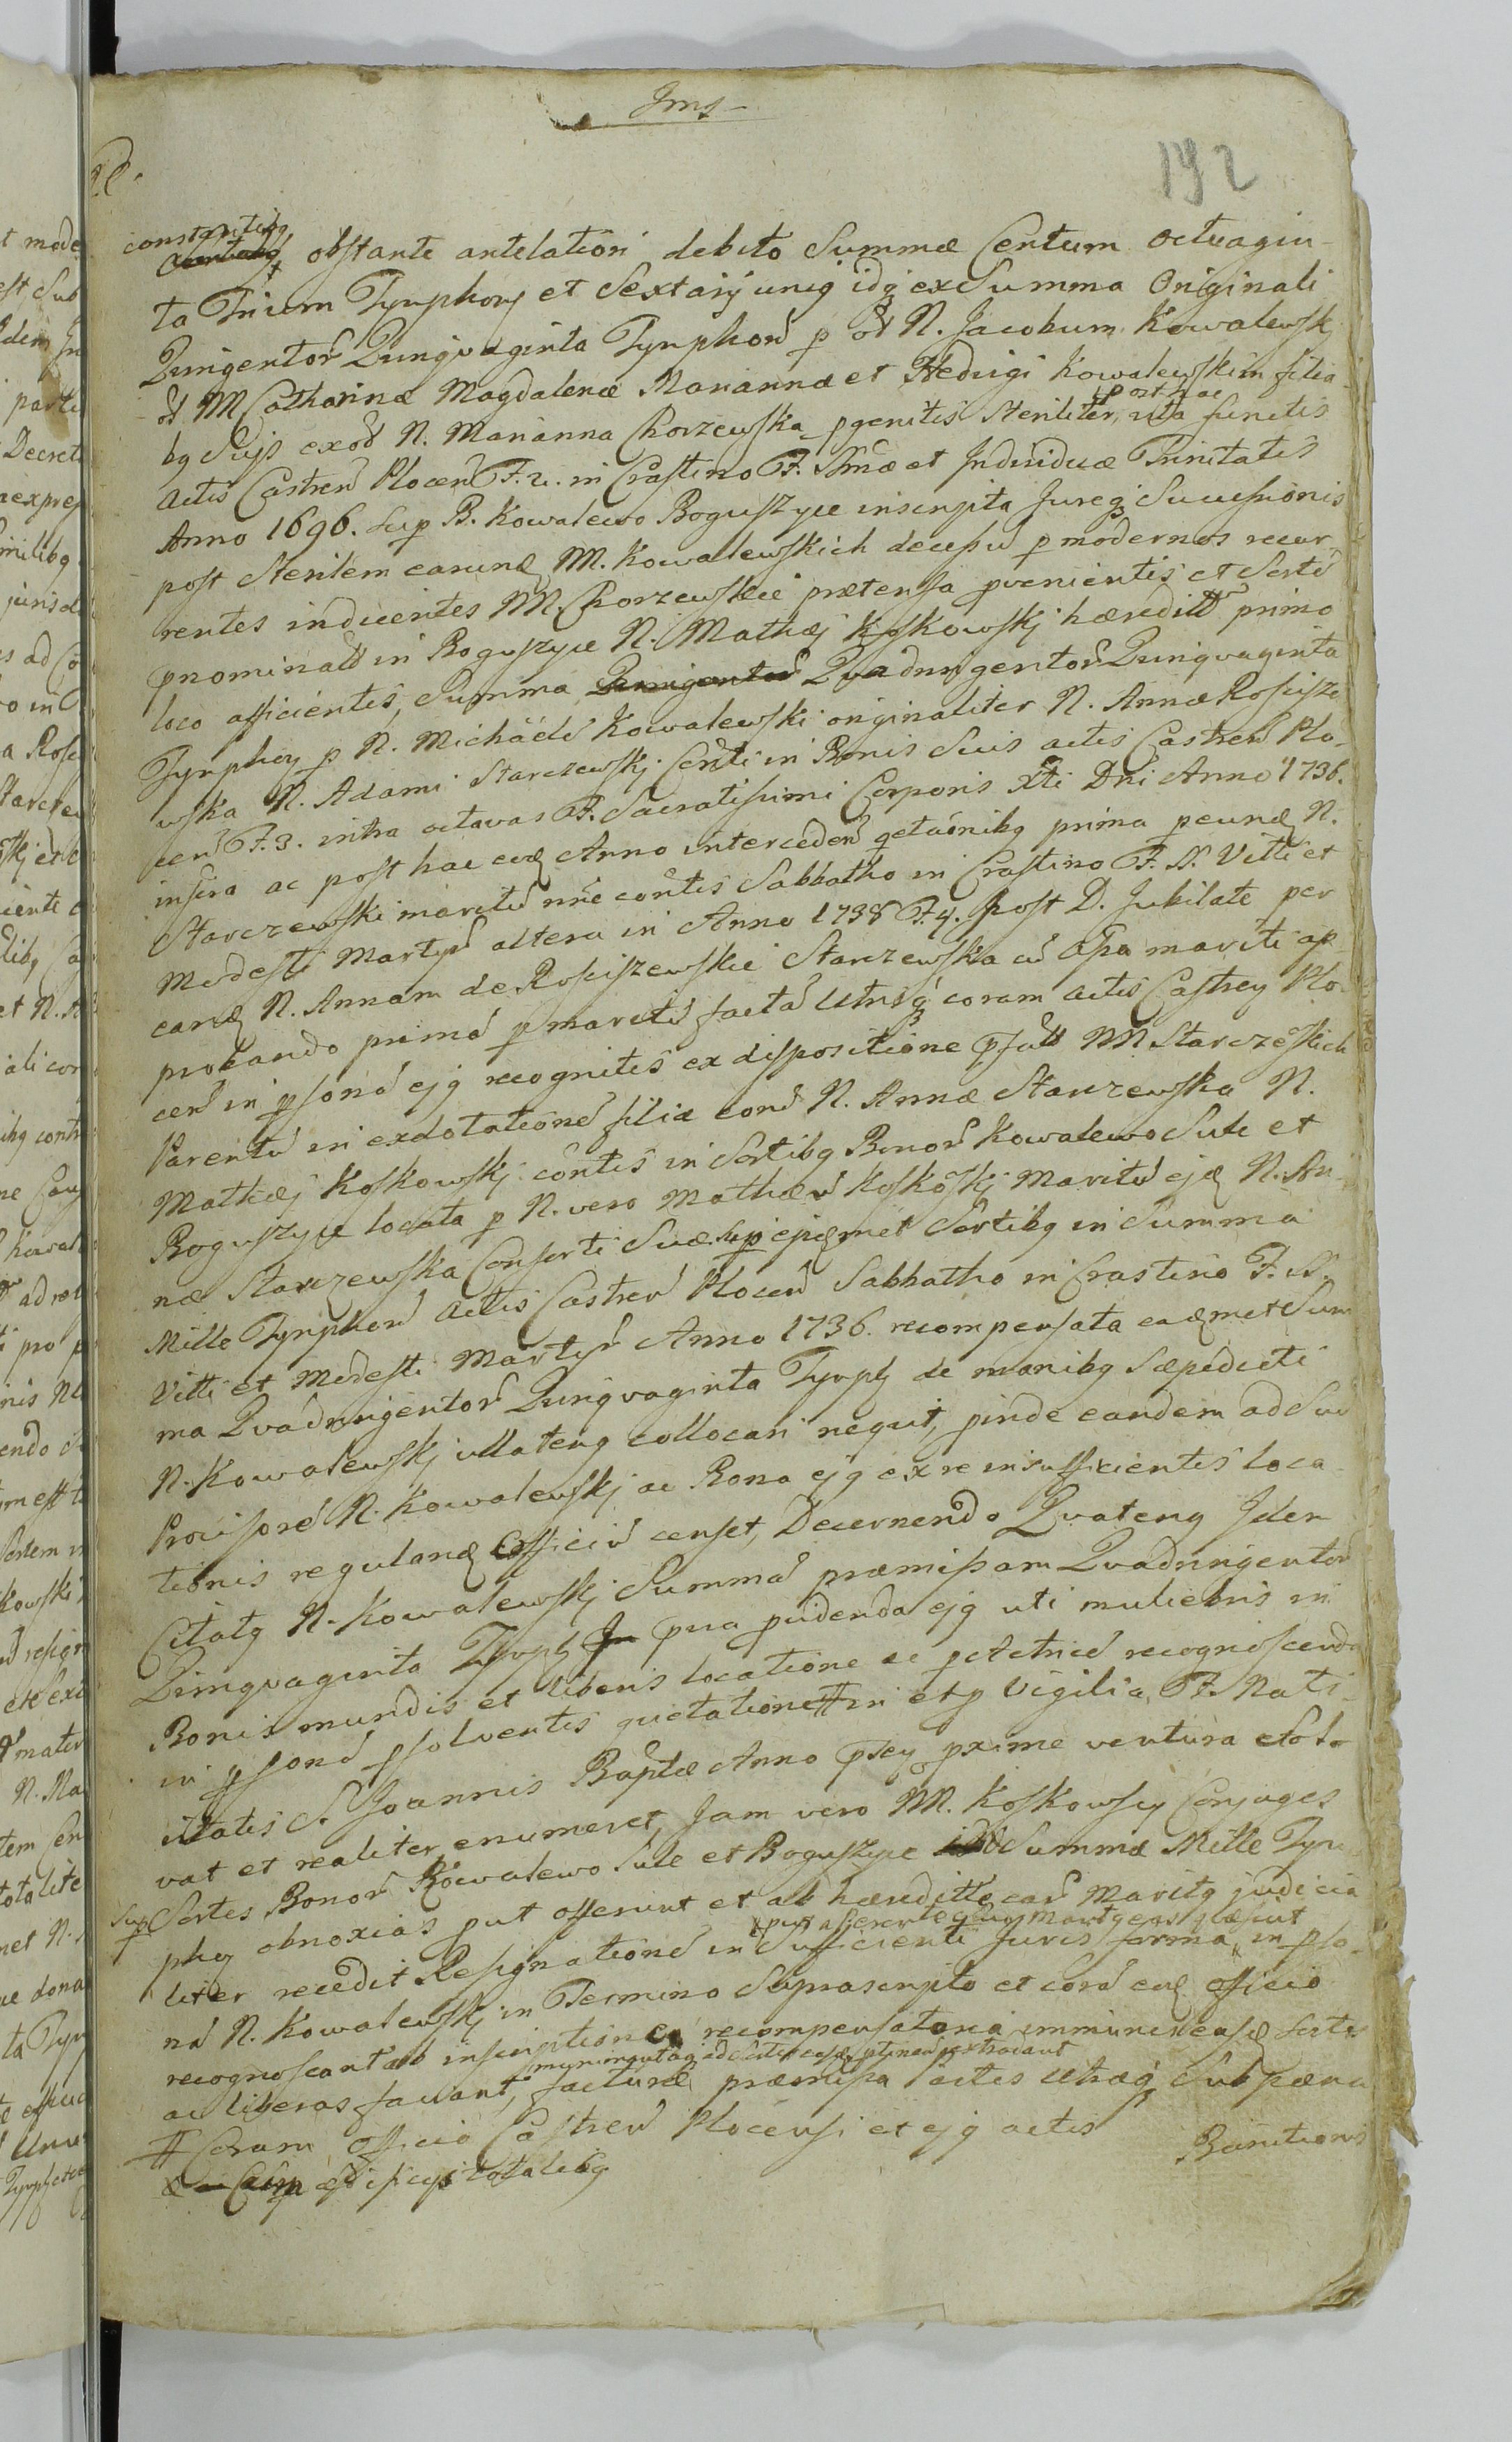 Jms
192
constantibq
obstante antelation debito Summæ Centum octuagin-
ta Trium Tynphorz et Sextarij uniq idq ex Summa Originali
Quingentor Quinqvaginta Tynphor p od N. Jacobum Kowalewskj
od M Catharinæ Magdalenæ Mariannæ et Hedvigi Kowalewskim filia-
post hac
bq Suis exod N. Marianna Chorzewska pgenitis Steriliter, vita functis
actis Castren Plocen F. 2. in Crastino F. SSmæ et Individuæ Trinitatis
Anno 1696. sup B. Kowalewo Boguszyce inscripta Jureq Successionis
post Sterilem earund MM. Kowalewskich decessu p modernos recur
rentes indicentes MM. Chorzewskie prætensa pvenientis et Sorte
pnominatt in Boguszyce N. Mathæj Koskowskj hæreditt primo
loco afficientis, Summa Quingentor Quadringentor Quinqvaginta
Tynphorz p N. Michäele Kowalewski originaliter N. Annæ Rosisze
wska N. Adami Starczewskj Conti in Bonis Suis actis Castren Plo-
cen F. 3. intra octavas F. Sacratissimi Corporis Xti Dni Anno 1736.
infra ac post hac eod Anno interceden qetaonibq prima p eund N.
Starczewski maritu nne contis Sabbatho in Crastino F. S. Vitti et
Modesti Martyr altera in Anno 1738 F. 4. post D. Jubilate per
eand N. Annam de Rosciszewskie Starczewska cu assa mariti ap
probando prima p maritu facta Utrisq coram actis Castrey Plo-
cen in psona ejq recognitis ex dispositione psatt MM Starczeskich
Parentu in exdotatione filiæ eorud N. Annæ Starczewska N.
Mathæj Koskowskj contis in Sortibq Bonor Kowalewo Sule et
Boguszyce locata p N. vero Mathæu Koskoskj Maritu ejd N. An-
næ Starczewska Consorti Suæ sup ejusdmet Sortibq in Summa
Mille Tynphor actis Castren Plocen Sabbatho in Crastino F. S.
Vitti et Modesti Martyr Anno 1736. recompensata eadmet Sum
ma Qvadringentor Quinqvaginta Tynph de manibq Sæpedicti
N. Kowalewskj ullatenq collocari nequit, pinde eandem ad Suu
Provisore N. Kowalewskj ac Bona ejq ex re insufficientis loca-
tionis reguland Officiu censet, Decernendo Qvatenq Idem
Citatq N. Kowalewskj Summa præmissam Qvadringentor
Quinqvaginta Tynph pua pvidenda ejq uti muliebris in
Bonis mundis et liberis locatione ac pctetrice recognoscenda
in psona psolventis quietatione in et p Vigilia F. Nati-
vitatis S. Joannis Baptæ Anno psey pxime ventura etsol-
vat et realiter enumeret, Jam vero MM. Koskowscy Conjuges
Sup Sortes Bonor Kowalewo Sule et Boguszyce Summæ Mille Tyn-
phorz obnoxias put offerunt et ab hæreditte ear Maritq judicia
liter recedit Resignatione in Sufficienti Juris forma in pso-
na N. Kowalewskj in Termino Suprascripto et cora eod officio
recognoscant ab inscriptione recompensatoria immunes easd Sortes
ac liberas faciant, facturæ præmissa actis Utraq Sub pæna
Coram Officio Castren Plocensi et ejq actis
Banitionis
ædificijs totalibq